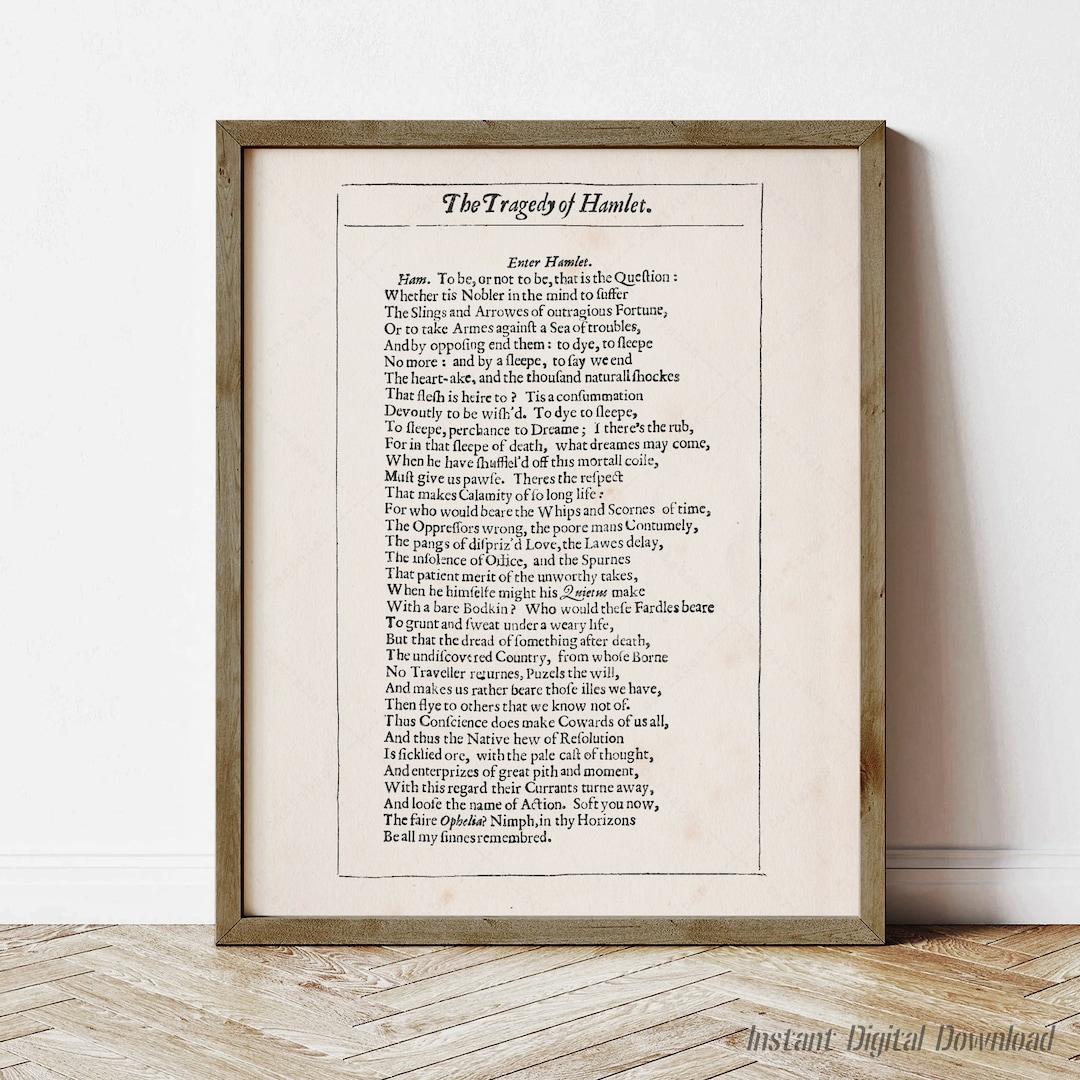 The Tragedy of Hamlet.
Enter Hamlet.
Ham. To be, or not to be, that is the Queſtion :
Whether tis Nobler in the mind to ſuffer
The Slings and Arrowes of outragious Fortune,
Or to take Armes againſt a Sea of troubles,
And by oppoſing end them : to dye, to ſleepe
No more : and by a ſleepe, to ſay we end
The heart-ake, and the thouſand naturall ſhockes
That fleſh is heire to ? Tis a conſummation
Devoutly to be wiſh'd. To dye to ſleepe,
To ſleepe, perchance to Dreame ; I there's the rub,
For in that ſleepe of death, what dreames may come,
When he have ſhufflel'd off this mortall coile,
Muſt give us pawſe. Theres the reſpect
That makes Calamity of ſo long life :
For who would beare the Whips and Scornes of time,
The Oppreſſors wrong, the poore mans Contumely,
The pangs of diſpriz'd Love, the Lawes delay,
The inſolence of Office, and the Spurnes
That patient merit of the unworthy takes,
When he himſelfe might his Quietus make
With a bare Bodkin ? Who would theſe Fardles beare
To grunt and ſweat under a weary life,
But that the dread of ſomething after death,
The undiſcovered Country, from whoſe Borne
No Traveller returnes, Puzels the will,
And makes us rather beare thoſe illes we have,
Then flye to others that we know not of.
Thus Conſcience does make Cowards of us all,
And thus the Native hew of Reſolution
Is ſicklied ore, with the pale caſt of thought,
And enterprizes of great pith and moment,
With this regard their Currants turne away,
And looſe the name of Action. Soft you now,
The faire Ophelia? Nimph, in thy Horizons
Be all my ſinnes remembred.
Instant Digital Download